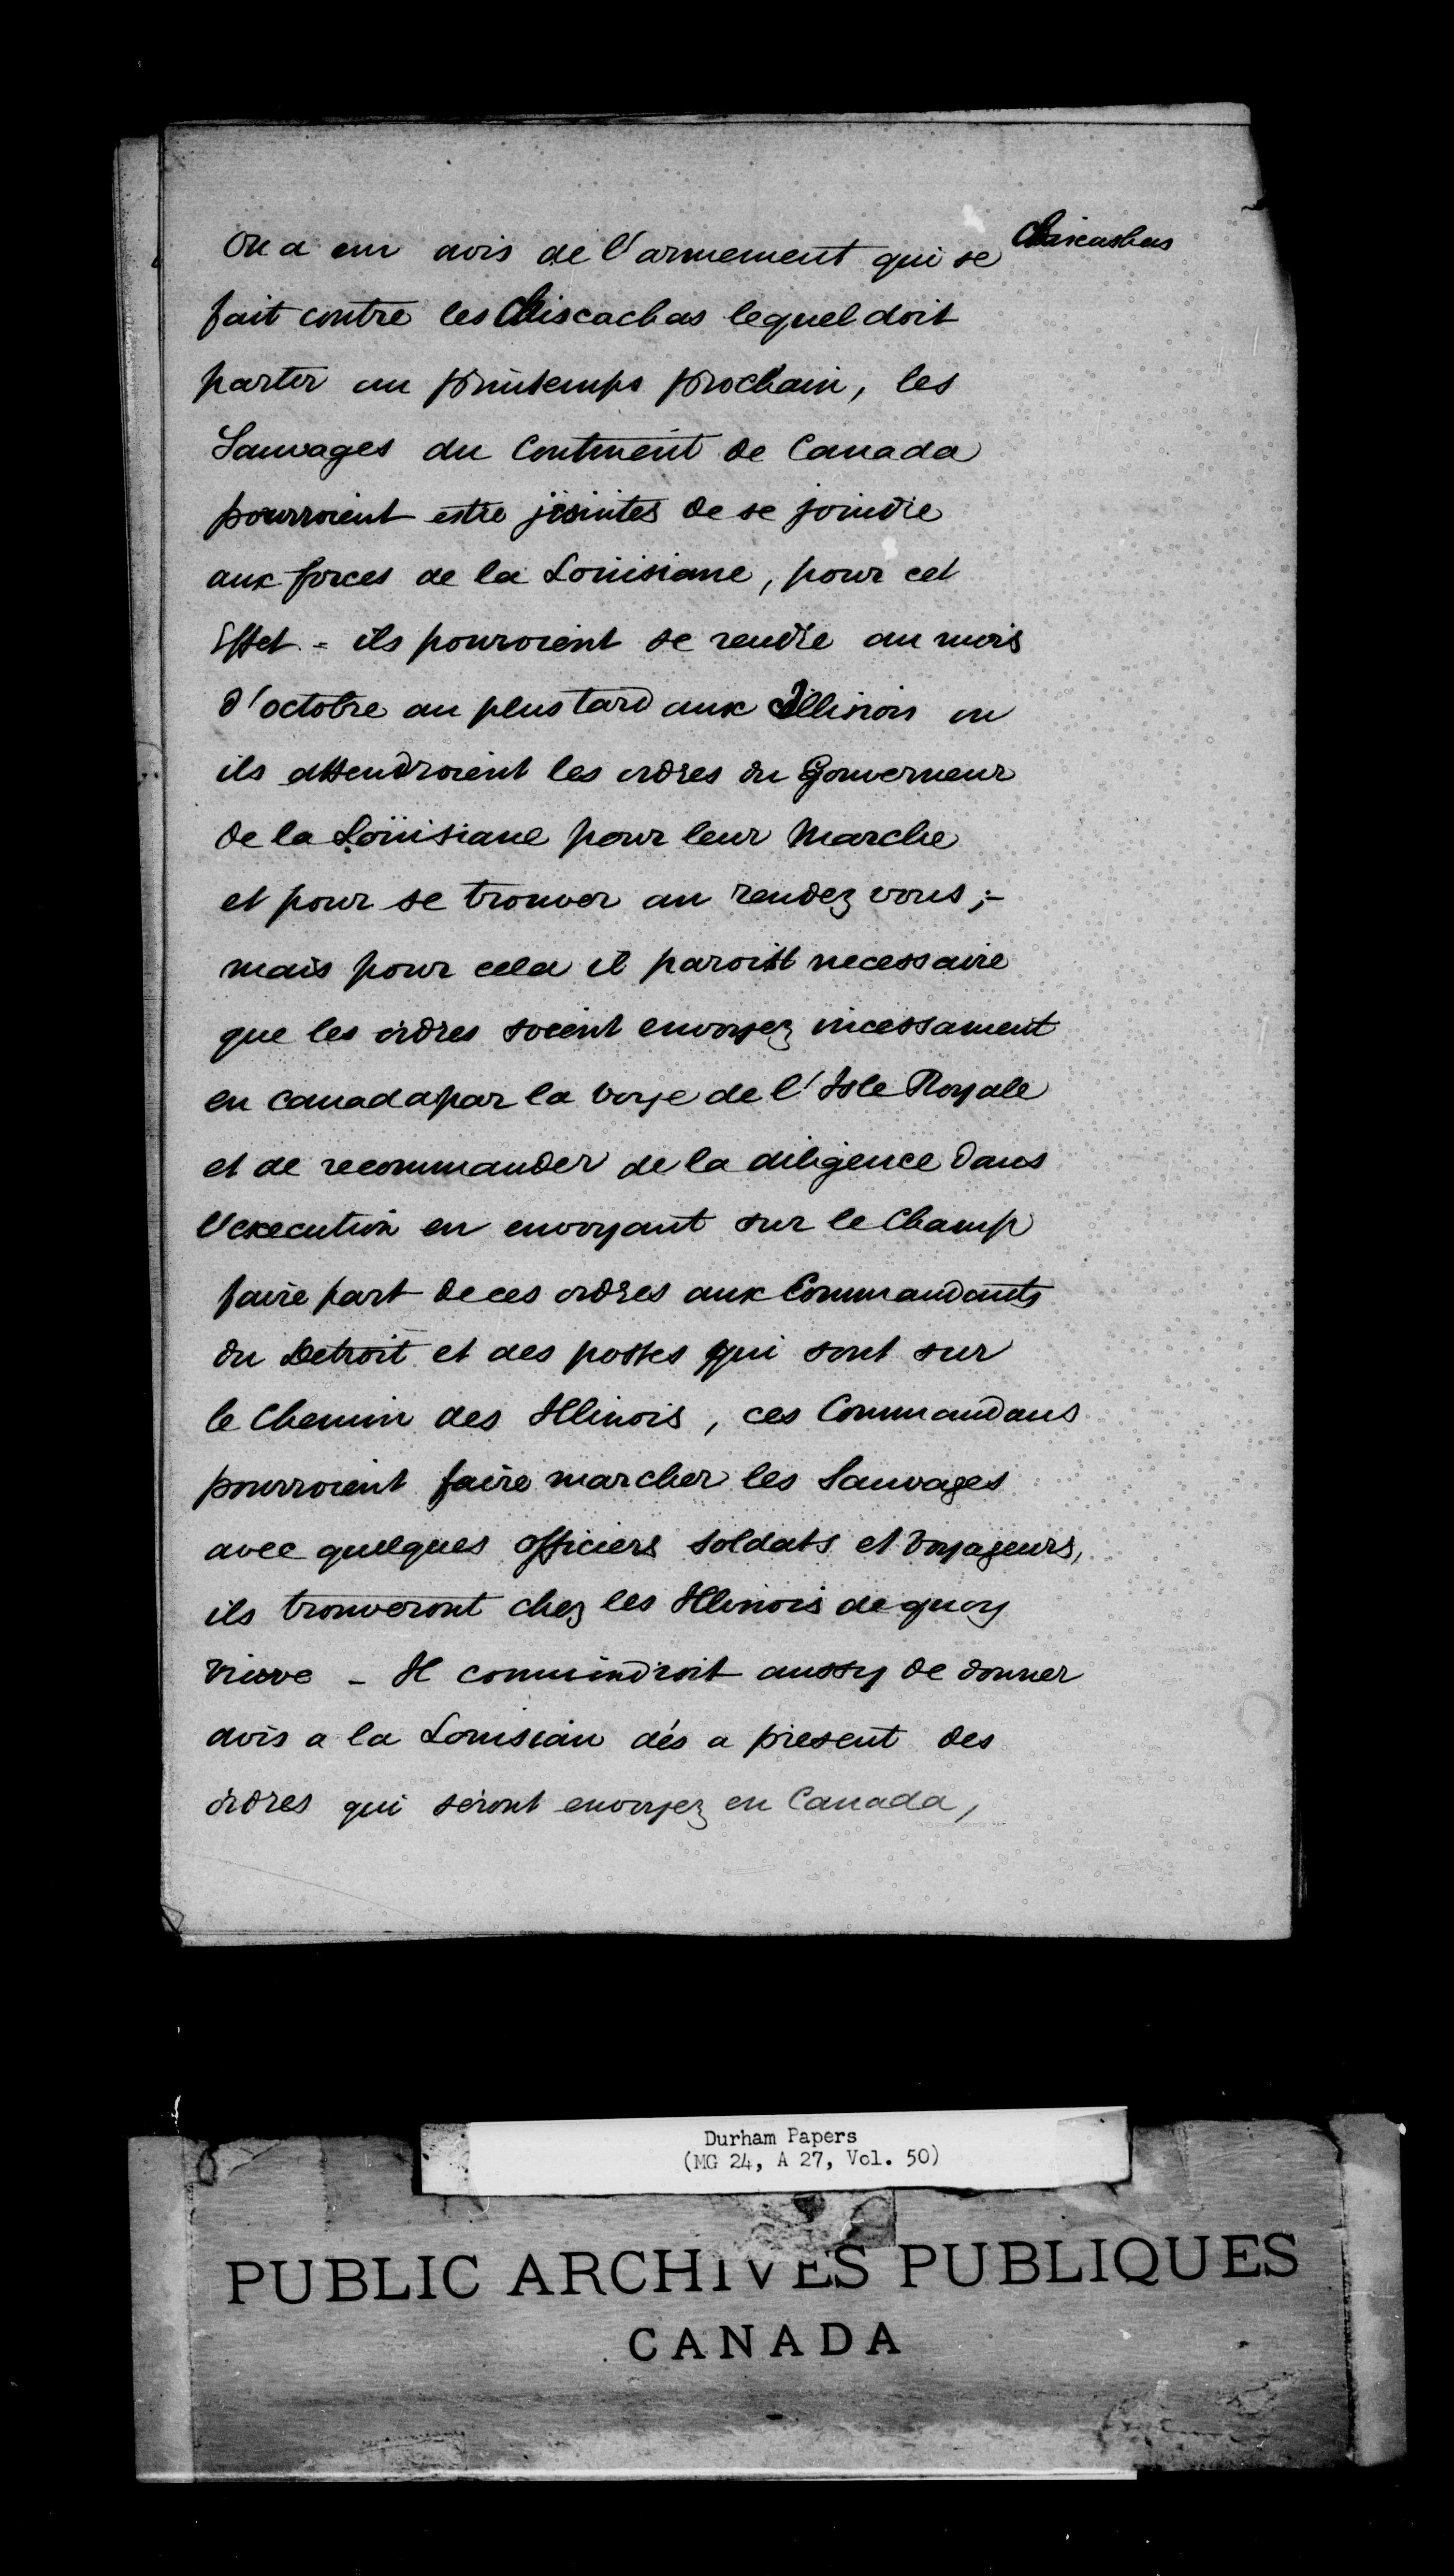 Chiscachas
On a eu avis de l'armement qui se
fait contre les Chiscachas lequel doit
partir au printemps prochain, les
Sauvages du Continent de Canada
pourroient estre jnvités de se joindre
aux forces de la Loüisiane, pour cet
Effet - ils pouroient se rendre au mois
d'octobre au plus tard aux Illinois ou
ils attendroient les ordres du Gouverneur
de la Loüisiane pour leur Marche
et pour se trouver au rendez vous ;-
mais pour cela il paroist necessaire
que les ordres soient envoyez incessament
en canada par la voye de l'Isle Royale
et de recommander de la diligence dans
l'execution en envoyant sur le Champ
faire part de ces ordres aux Commandants
du Detroit et des postes qui sont sur
le Chemin des Illinois, ces Commandans
pourroient faire marcher les Sauvages
avec quelques officiers soldats et voyageurs,
ils trouveront chez les Illinois de quoy
vivre - Il conviendroit aussy de donner
avis a la Louisian dés a present des
ordres qui seront envoyez en Canada,
Durham Papers
(MG 24, A 27, Vol. 50)
PUBLIC ARCHIVES PUBLIQUES
CANADA